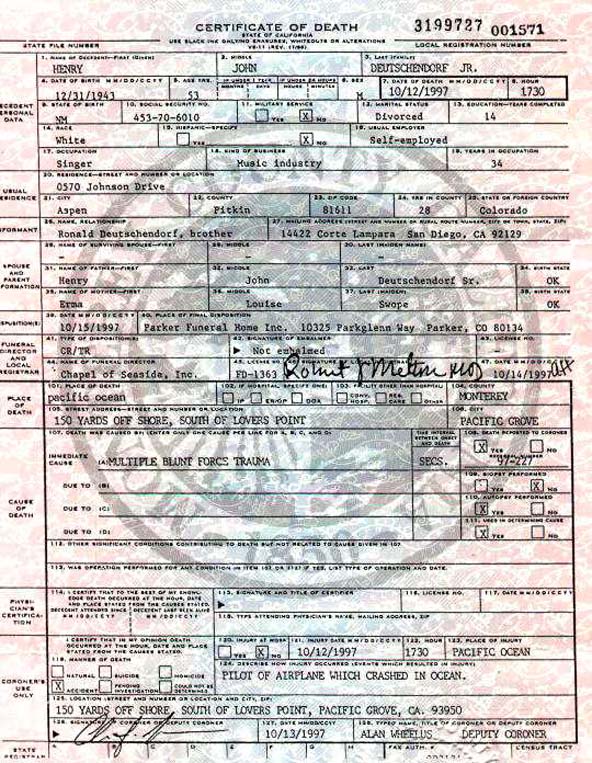 CERTIFICATE OF DEATH
STATE OF CALIFORNIA
USE BLACK INK ONLY/NO ERASURES, WHITEOUTS OR ALTERATIONS
3199727 001571
STATE FILE NUMBER
LOCAL REGISTRATION NUMBER
1. NAME OF DECEDENT—FIRST (GIVEN) 2. MIDDLE 3. LAST (FAMILY)
HENRY JOHN DEUTSCHENDORF JR.
4. DATE OF BIRTH MM/DD/CCYY 5. AGE YRS. IF UNDER 1 YEAR IF UNDER 24 HOURS 6. SEX 7. DATE OF DEATH MM/DD/CCYY 8. HOUR
MONTHS DAYS HOURS MINUTES
12/31/1943 53 M 10/12/1997 1730
9. STATE OF BIRTH 10. SOCIAL SECURITY NO. 11. MILITARY SERVICE 12. MARITAL STATUS 13. EDUCATION—YEARS COMPLETED
NM 453-70-6010 YES X NO Divorced 14
14. RACE 15. HISPANIC—SPECIFY 16. USUAL EMPLOYER
White YES X NO Self-employed
17. OCCUPATION 18. KIND OF BUSINESS 19. YEARS IN OCCUPATION
Singer Music industry 34
20. RESIDENCE—STREET AND NUMBER OR LOCATION
0570 Johnson Drive
21. CITY 22. COUNTY 23. ZIP CODE 24. YRS IN COUNTY 25. STATE OR FOREIGN COUNTRY
Aspen Pitkin 81611 28 Colorado
26. NAME, RELATIONSHIP 27. MAILING ADDRESS (STREET AND NUMBER OR RURAL ROUTE NUMBER, CITY OR TOWN, STATE, ZIP)
Ronald Deutschendorf, brother 14422 Corte Lampara San Diego, CA 92129
28. NAME OF SURVIVING SPOUSE—FIRST 29. MIDDLE 30. LAST (MAIDEN NAME)
- - -
31. NAME OF FATHER—FIRST 32. MIDDLE 33. LAST 34. BIRTH STATE
Henry John Deutschendorf Sr. OK
35. NAME OF MOTHER—FIRST 36. MIDDLE 37. LAST (MAIDEN) 38. BIRTH STATE
Erma Louise Swope OK
39. DATE MM/DD/CCYY 40. PLACE OF FINAL DISPOSITION
10/15/1997 Parker Funeral Home Inc. 10325 Parkglenn Way Parker, CO 80134
41. TYPE OF DISPOSITION(S) 42. SIGNATURE OF EMBALMER 43. LICENSE NO.
CR/TR Not embalmed -
44. NAME OF FUNERAL DIRECTOR 45. LICENSE NO. 46. SIGNATURE 47. DATE MM/DD/CCYY
Chapel of Seaside, Inc. FD-1363 10/14/1997
101. PLACE OF DEATH 102. IF HOSPITAL, SPECIFY ONE: 103. FACILITY OTHER THAN HOSPITAL: 104. COUNTY
pacific ocean IP ER/OP DOA CONV. HOSP. RES. CARE OTHER MONTEREY
105. STREET ADDRESS—STREET AND NUMBER OR LOCATION 106. CITY
150 YARDS OFF SHORE, SOUTH OF LOVERS POINT PACIFIC GROVE
107. DEATH WAS CAUSED BY: (ENTER ONLY ONE CAUSE PER LINE FOR A, B, C, AND D) TIME INTERVAL BETWEEN ONSET AND DEATH 108. DEATH REPORTED TO CORONER
X YES NO
IMMEDIATE CAUSE (A) MULTIPLE BLUNT FORCE TRAUMA SECS. 97-227
109. BIOPSY PERFORMED
DUE TO (B) YES X NO
110. AUTOPSY PERFORMED
DUE TO (C) X YES NO
111. USED IN DETERMINING CAUSE
DUE TO (D) X YES NO
112. OTHER SIGNIFICANT CONDITIONS CONTRIBUTING TO DEATH BUT NOT RELATED TO CAUSE GIVEN IN 107
113. WAS OPERATION PERFORMED FOR ANY CONDITION IN ITEM 107 OR 112? IF YES, LIST TYPE OF OPERATION AND DATE.
114. I CERTIFY THAT TO THE BEST OF MY KNOWLEDGE DEATH OCCURRED AT THE HOUR, DATE AND PLACE STATED FROM THE CAUSES STATED. 115. SIGNATURE AND TITLE OF CERTIFIER 116. LICENSE NO. 117. DATE MM/DD/CCYY
DECEDENT ATTENDED SINCE DECEDENT LAST SEEN ALIVE
MM/DD/CCYY MM/DD/CCYY 118. TYPE ATTENDING PHYSICIAN'S NAME, MAILING ADDRESS, ZIP
I CERTIFY THAT IN MY OPINION DEATH OCCURRED AT THE HOUR, DATE AND PLACE STATED FROM THE CAUSES STATED. 120. INJURY AT WORK 121. INJURY DATE MM/DD/CCYY 122. HOUR 123. PLACE OF INJURY
YES X NO 10/12/1997 1730 PACIFIC OCEAN
119. MANNER OF DEATH 124. DESCRIBE HOW INJURY OCCURRED (EVENTS WHICH RESULTED IN INJURY)
NATURAL SUICIDE HOMICIDE PILOT OF AIRPLANE WHICH CRASHED IN OCEAN.
X ACCIDENT PENDING INVESTIGATION COULD NOT BE DETERMINED
125. LOCATION (STREET AND NUMBER OR LOCATION AND CITY, ZIP)
150 YARDS OFF SHORE, SOUTH OF LOVERS POINT, PACIFIC GROVE, CA. 93950
126. SIGNATURE OF CORONER OR DEPUTY CORONER 127. DATE MM/DD/CCYY 128. TYPED NAME, TITLE OF CORONER OR DEPUTY CORONER
10/13/1997 ALAN WHEELUS DEPUTY CORONER
STATE REGISTRAR A B C D E F G H FAX AUTH. # CENSUS TRACT